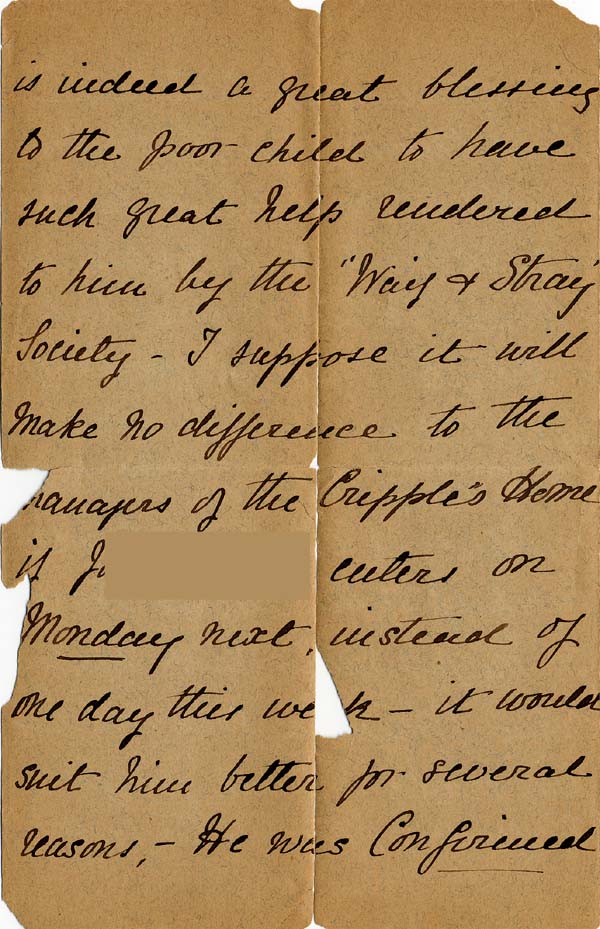 is indeed a great blessing
to the poor child to have
such great help rendered
to him by the "Waif & Stray"
Society - I suppose it will
make no difference to the
managers of the Cripple's Home
if J enters on
Monday next, instead of
one day this week - it would
suit him better for several
reasons, - He was Confirmed